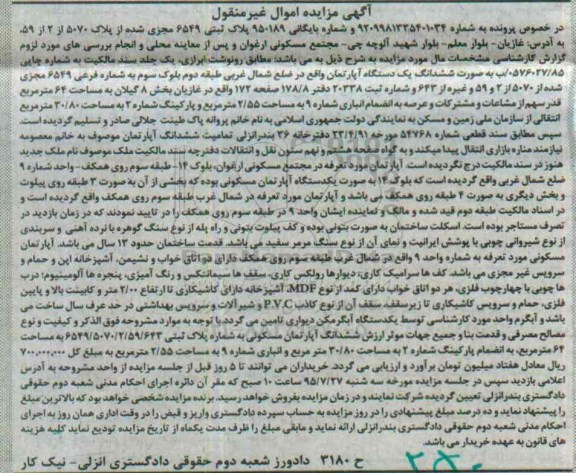 آگهی مزایده اموال غیرمنقول
در خصوص پرونده به شماره ۹۲۰۹۹۸۱۳۳۵۴۰۱۰۳۴ و شماره بایگانی ۹۵۰۱۸۹ پلاک ثبتی ۶۵۴۹ مجزی شده از پلاک ۵۰۷۰ از ۲ از ۵۹،
به آدرس: غازیان- بلوار معلم- بلوار شهید آلوچه چی- مجتمع مسکونی ارغوان و پس از معاینه محلی و انجام بررسی های مورد لزوم
گزارش کارشناسی مشخصات مال مورد مزایده به شرح ذیل به می باشد: مطابق رونوشت ابرازی، یک جلد سند مالکیت به شماره چاپی
۰۵۷۶۰۲۷/۸۵/ب به صورت ششدانگ یک دستگاه آپارتمان واقع در ضلع شمال غربی طبقه دوم بلوک سوم به شماره فرعی ۶۵۴۹ مجزی
شده از ۵۰۷۰ از ۲ و ۵۹ و غیره از ۶۴۳ و شماره ثبت ۲۰۳۳۸ دفتر ۱۷۸/۸ صفحه ۱۷۲ واقع در غازیان بخش ۸ گیلان به مساحت ۶۴ مترمربع
قدرسهم از مشاعات و مشترکات و عرصه به انضمام انباری شماره ۹ به مساحت ۲/۵۵ مترمربع و پارکینگ شماره ۲ به مساحت ۳۰/۸۰ مترمربع
انتقالی از سازمان ملی زمین و مسکن به نمایندگی دولت جمهوری اسلامی به نام خانم پروانه پاک طینت جلالی صادر و تسلیم گردیده است.
سپس مطابق سند قطعی شماره ۵۴۷۶۸ مورخه ۲۲/۴/۹۱ دفترخانه ۳۶ بندرانزلی تمامیت ششدانگ آپارتمان موصوف به خانم معصومه
نیازمند مناره بازاری انتقال پیدا میکند و به گواه صفحه هشتم و نهم ستون نقل و انتقالات دفترچه سند مالکیت ملک موصوف نام ملک جدید
هنوز در سند مالکیت درج نگردیده است. آپارتمان مورد تعرفه در مجتمع مسکونی ارغوان، بلوک ۱۴- طبقه سوم روی همکف- واحد شماره ۹
ضلع شمال غربی واقع گردیده است که بلوک ۱۴ به صورت یکدستگاه آپارتمان مسکونی بوده که بخشی از آن به صورت ۳ طبقه روی پیلوت
و بخش دیگری به صورت ۴ طبقه روی همکف می باشد و آپارتمان مورد تعرفه در شمال غرب طبقه سوم روی همکف واقع گردیده است و
در اسناد مالکیت طبقه دوم قید شده و مالک و نماینده ایشان واحد ۹ در طبقه سوم روی همکف را در تایید نمودند که در زمان بازدید در
تصرف مستاجر بوده است. اسکلت ساختمان به صورت بتونی بوده و کف پیلوت بتونی و راه پله از نوع سنگ گوهره با نرده آهنی و سربندی
از نوع شیروانی چوبی با پوشش ایرانیت و نمای آن از نوع سنگ مرمر سفید می باشد. قدمت ساختمان حدود ۱۳ سال می باشد. آپارتمان
مسکونی مورد تعرفه به شماره واحد ۹ واقع در شمال غرب طبقه سوم روی همکف دارای دو اتاق خواب و نشیمن، آشپزخانه اپن و حمام و
سرویس غیر مجزی می باشد. کف ها سرامیک کاری، دیوارها رولکس کاری، سقف ها سیمانتکس و رنگ آمیزی، پنجره ها آلومینیوم؛ درب
ها چوبی با چهارچوب فلزی، هر دو اتاق خواب دارای کمد از نوع MDF، آشپزخانه دارای کاشیکاری تا ارتفاع ۲/۰۰ متر و کابینت بالا و پایین
فلزی، حمام و سرویس کاشیکاری تا زیرسقف، سقف آن از نوع کاذب P.V.C و شیرآلات و سرویس بهداشتی در حد عرف سال ساخت می
باشد و آبگرم واحد مورد کارشناسی توسط یکدستگاه آبگرمکن دیواری تامین می گردد. با توجه به موارد مشروحه فوق الذکر و کیفیت و نوع
مصالح مصرفی و قدمت بنا و جمیع جهات موثر ارزش ششدانگ آپارتمان مسکونی به شماره پلاک ثبتی ۶۵۴۹/۵۰۷۰/۲/۵۹/۶۴۳ به مساحت
۶۴ مترمربع، به انضمام پارکینگ شماره ۲ به مساحت ۳۰/۸۰ متر مربع و انباری شماره ۹ به مساحت ۲/۵۵ مترمربع به مبلغ کل ۷۰۰,۰۰۰,۰۰۰
ریال معادل هفتاد میلیون تومان برآورد و ارزیابی می گردد. خریداران می توانند تا ۵ روز قبل از جلسه مزایده از واحد مشروحه به آدرس
اعلامی بازدید سپس در جلسه مزایده مورخه سه شنبه ۹۵/۷/۲۷ ساعت ۱۰ صبح که مقر آن دائره اجرای احکام مدنی شعبه دوم حقوقی
دادگستری بندرانزلی تعیین گردیده شرکت نمایند و در زمان مزایده بفروش خواهد رسید. برنده مزایده شخصی خواهد بود که بالاترین مبلغ
را پیشنهاد نماید و ده درصد مبلغ پیشنهادی را در روز مزایده به حساب سپرده دادگستری واریز و قبض را در وقت اداری همان روز به اجرای
احکام مدنی شعبه دوم حقوقی دادگستری بندرانزلی ارائه نماید و مابقی مبلغ را ظرف مدت یکماه از تاریخ مزایده تودیع نماید کلیه هزینه
های قانون به عهده خریدار می باشد.
ح ۳۱۸۰ دادورز شعبه دوم حقوقی دادگستری انزلی- نیک کار